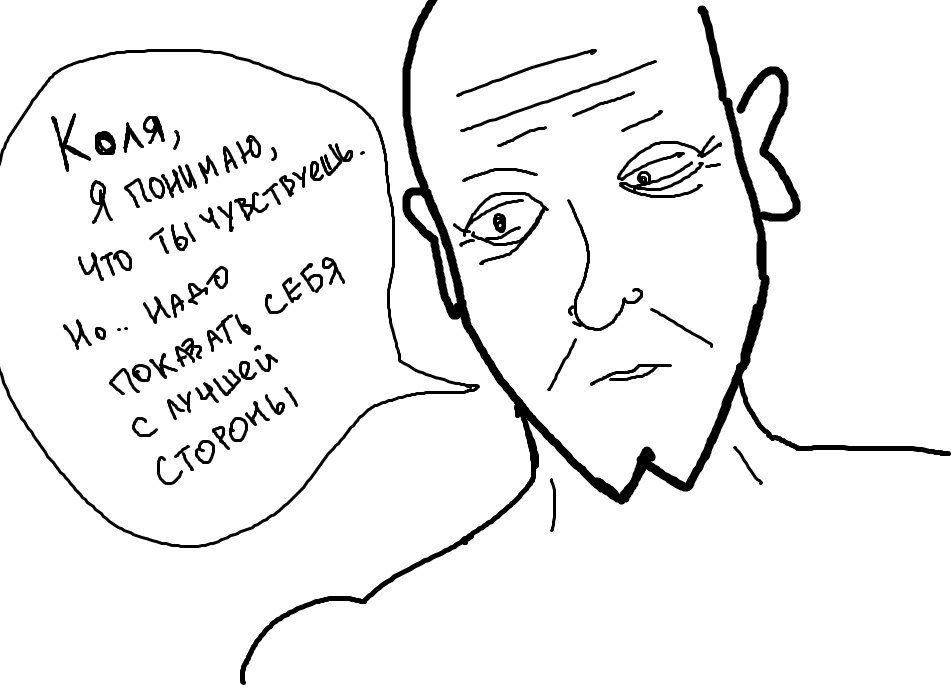 Коля,
Я ПОНИМАЮ,
ЧТО ТЫ ЧУВСТВУЕШЬ.
Но.. НАДО
ПОКАЗАТЬ СЕБЯ
С ЛУЧШЕЙ
СТОРОНЫ